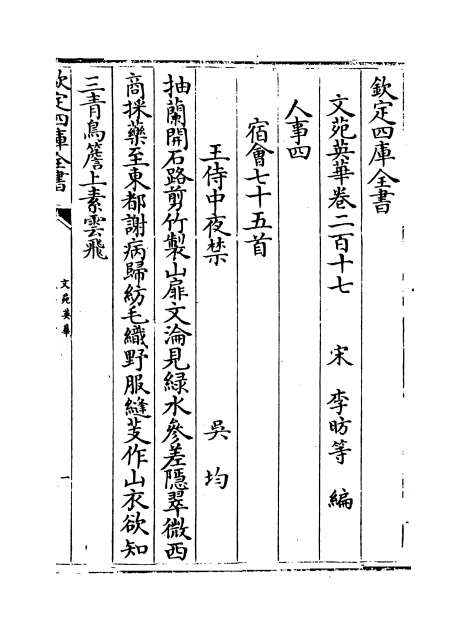 欽定四庫全書
文苑英華卷二百十七 宋 李昉等 編
人事四
宿會七十五首
王侍中夜禁 吳均
抽蘭開石路剪竹製山扉文淪見綠水參差隱翠微西
商採藥至東都謝病歸紡毛織野服縫芰作山衣欲知
三青鳥簷上素雲飛
欽定四庫全書
文苑英華
一